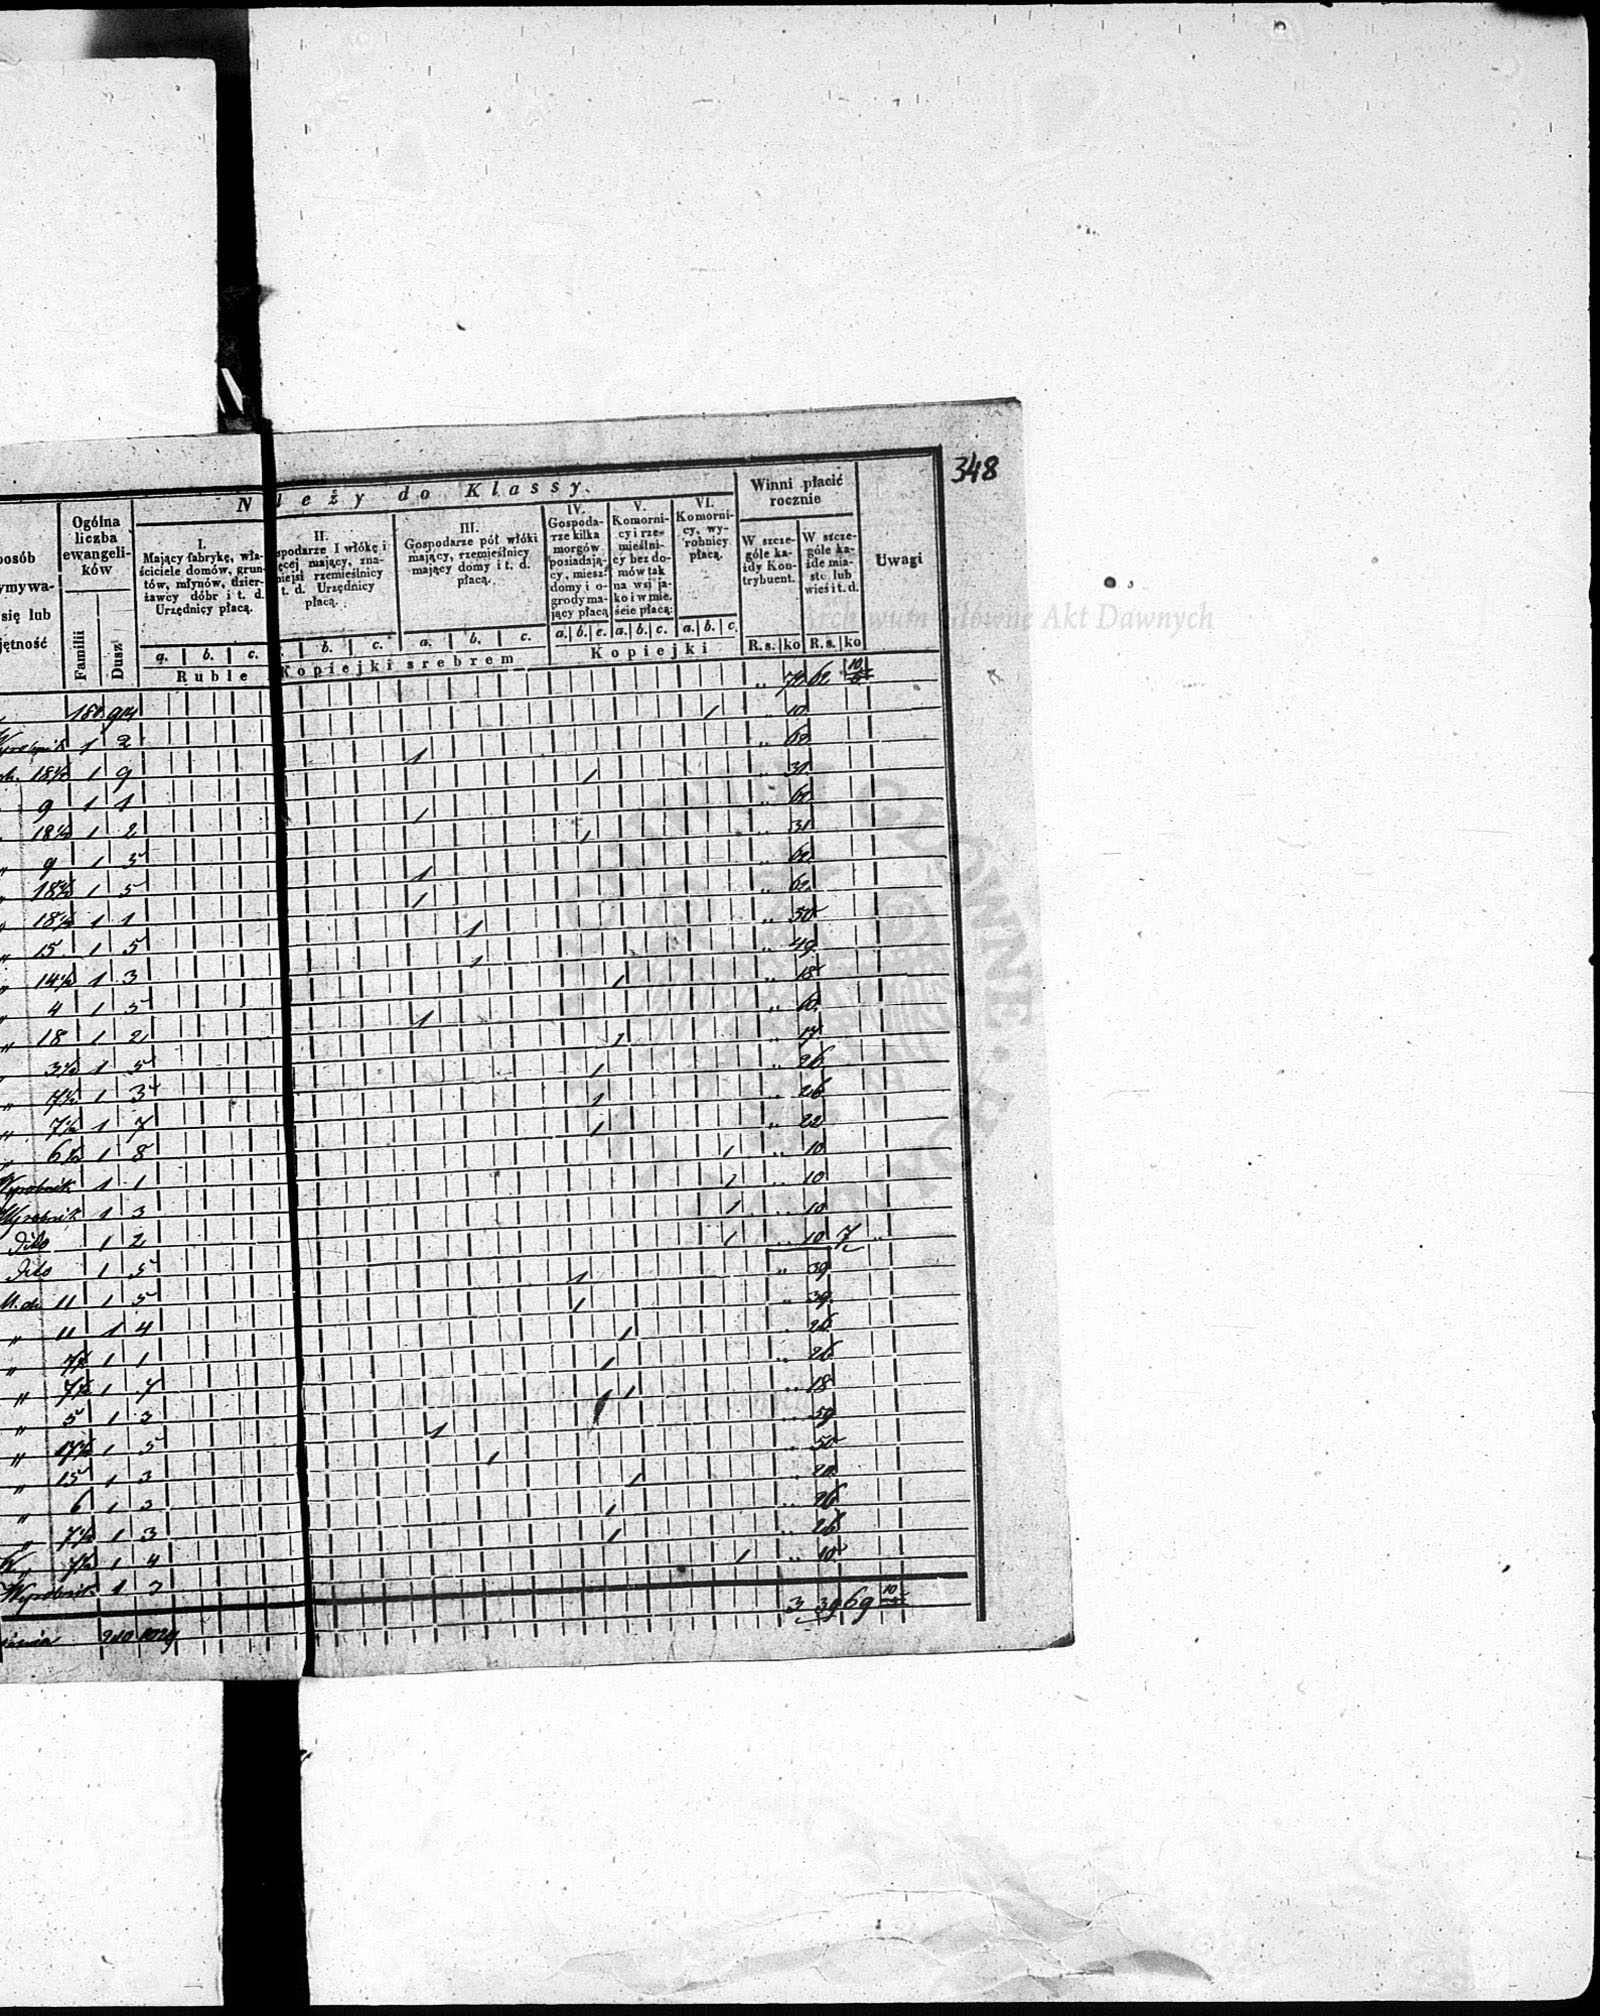 348
N leży do Klassy.
posób
ymywa-
się lub
jętność
Ogólna
liczba
ewangeli-
ków
Familii
Dusz
I.
Mający fabrykę, wła-
ściciele domów, grun-
tów, młynów, dzier-
żawcy dóbr i t. d.
Urzędnicy płacą.
a. b. c.
Ruble
II.
spodarze I włókę i
ęcej mający, zna-
niejsi rzemieślnicy
t. d. Urzędnicy
płacą.
b. c.
III.
Gospodarze pół włóki
mający, rzemieślnicy
mający domy i t. d.
płacą.
a. b. c.
Kopiejki srebrem
IV.
Gospoda-
rze kilka
morgów
posiadają-
cy, miesz.
domy i o-
grody ma-
jący płacą
a. b. c.
V.
Komorni-
cy i rze-
mieślni-
cy bez do-
mów tak
na wsi ja-
ko i w mie-
ście płacą:
a. b. c.
VI.
Komorni-
cy, wy-
robnicy
płacą.
a. b. c.
Kopiejki
Winni płacić
rocznie
W szcze-
góle ka-
żdy Kon-
trybuent.
R.s. ko
W szcze-
góle ka-
żde mia-
sto lub
wieś i t. d.
R.s. ko
Uwagi
Wyrobnik 1 2 1 „ 10
18½ 1 9 1 „ 62
9 1 1 1 „ 31
18½ 1 2 1 „ 62
„ 9 1 5 1 „ 31
„ 18½ 1 5 1 „ 62
„ 18½ 1 1 1 „ 62
„ 15 1 5 1 „ 50
„ 14½ 1 3 1 „ 49
„ 4 1 5 1 „ 18
„ 18 1 2 1 „ 60
„ 3½ 1 5 1 „ 17
„ 7½ 1 3 1 „ 26
„ 7½ 1 7 1 „ 26
„ 6½ 1 8 1 „ 22
Wyrobnik 1 1 1 „ 10
Wyrobnik 1 3 1 „ 10
Dito 1 2 1 „ 10
Dito 1 5 1 „ 10 7 „
M. dto 11 1 5 1 „ 39
„ 11 1 4 1 „ 39
„ 7½ 1 1 1 „ 26
„ 7½ 1 7 1 „ 26
„ 5 1 3 1 „ 18
„ 17½ 1 5 1 „ 59
„ 15 1 3 1 „ 50
„ 6 1 3 1 „ 20
„ 7½ 1 3 1 „ 26
„ 7½ 1 4 1 „ 26
Wyrobnik 1 3 1 „ 10
210 1029 3 39 69 10
Archiwum Główne Akt Dawnych
Archiwum Główne Akt Dawnych